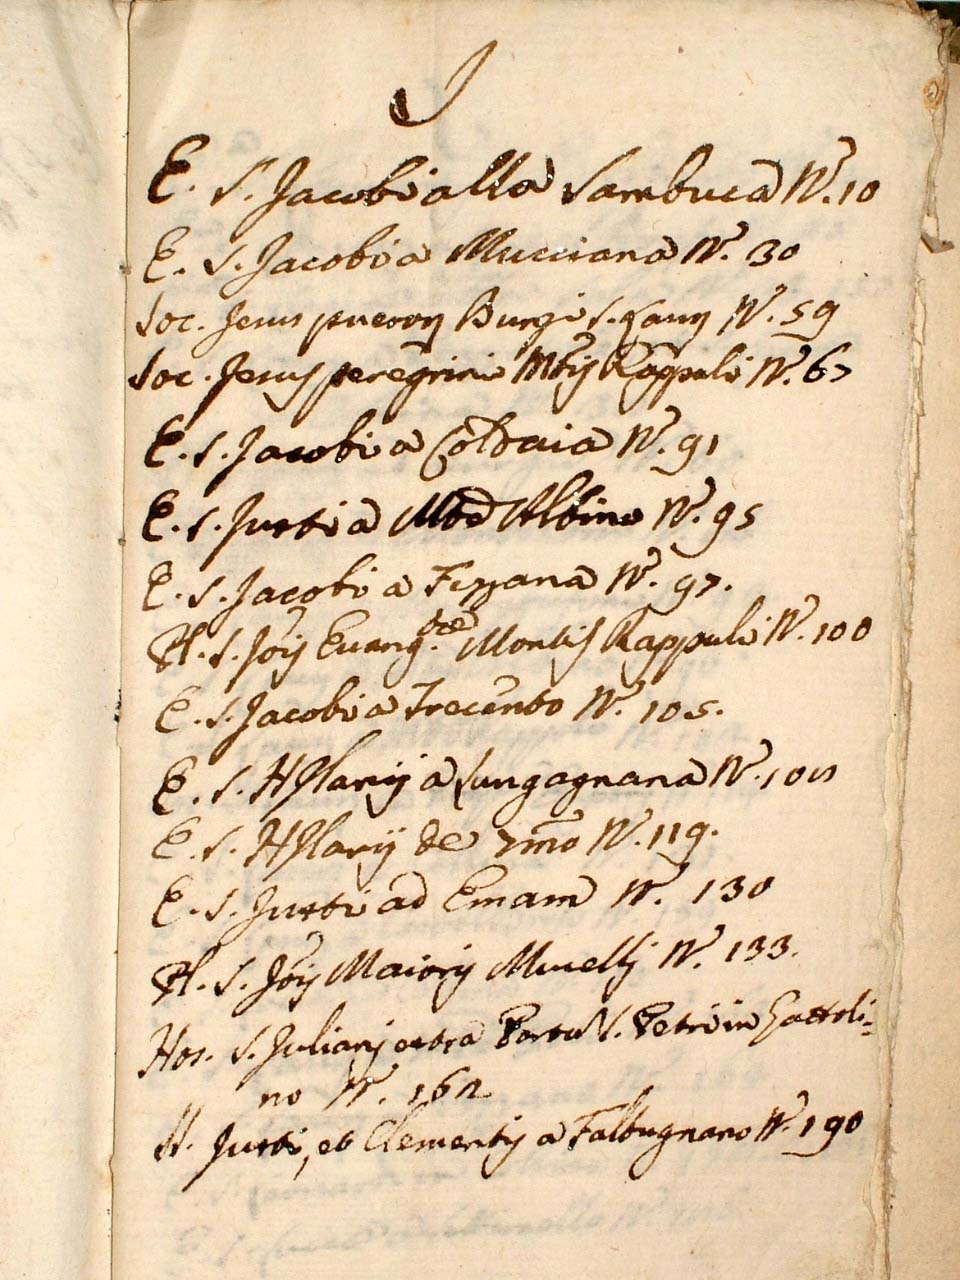 J
E. S. Jacobi alla Sambuca N. 10
E. S. Jacobi a Mucciana N. 30
Soc. Jesus pueroꝝ Burgi S. N. 59
Soc. Jesus peregrini Mtis Rappoli N. 67
E. S. Jacobi a Coldaia N. 91
E. S. Justi a Mte Albino N. 95
E. S. Jacobi a Fezzana N. 97.
Pl. S. Jois Evang.tæ Montis Rappuli N. 100
E. S. Jacobi a Trecento N. 105.
E. S. Hylarij a Lungagnana N.
E. S. Hylarij de 7mo N. 119.
E. S. Justi ad Emam N. 130
Pl. S. Jois Maioris Mucelli N. 133.
Hos. S. Juliani extra Porta S. Petri in Gattoli=
no N. 162
H. Justi, et Clementis a Faltugnano N. 190